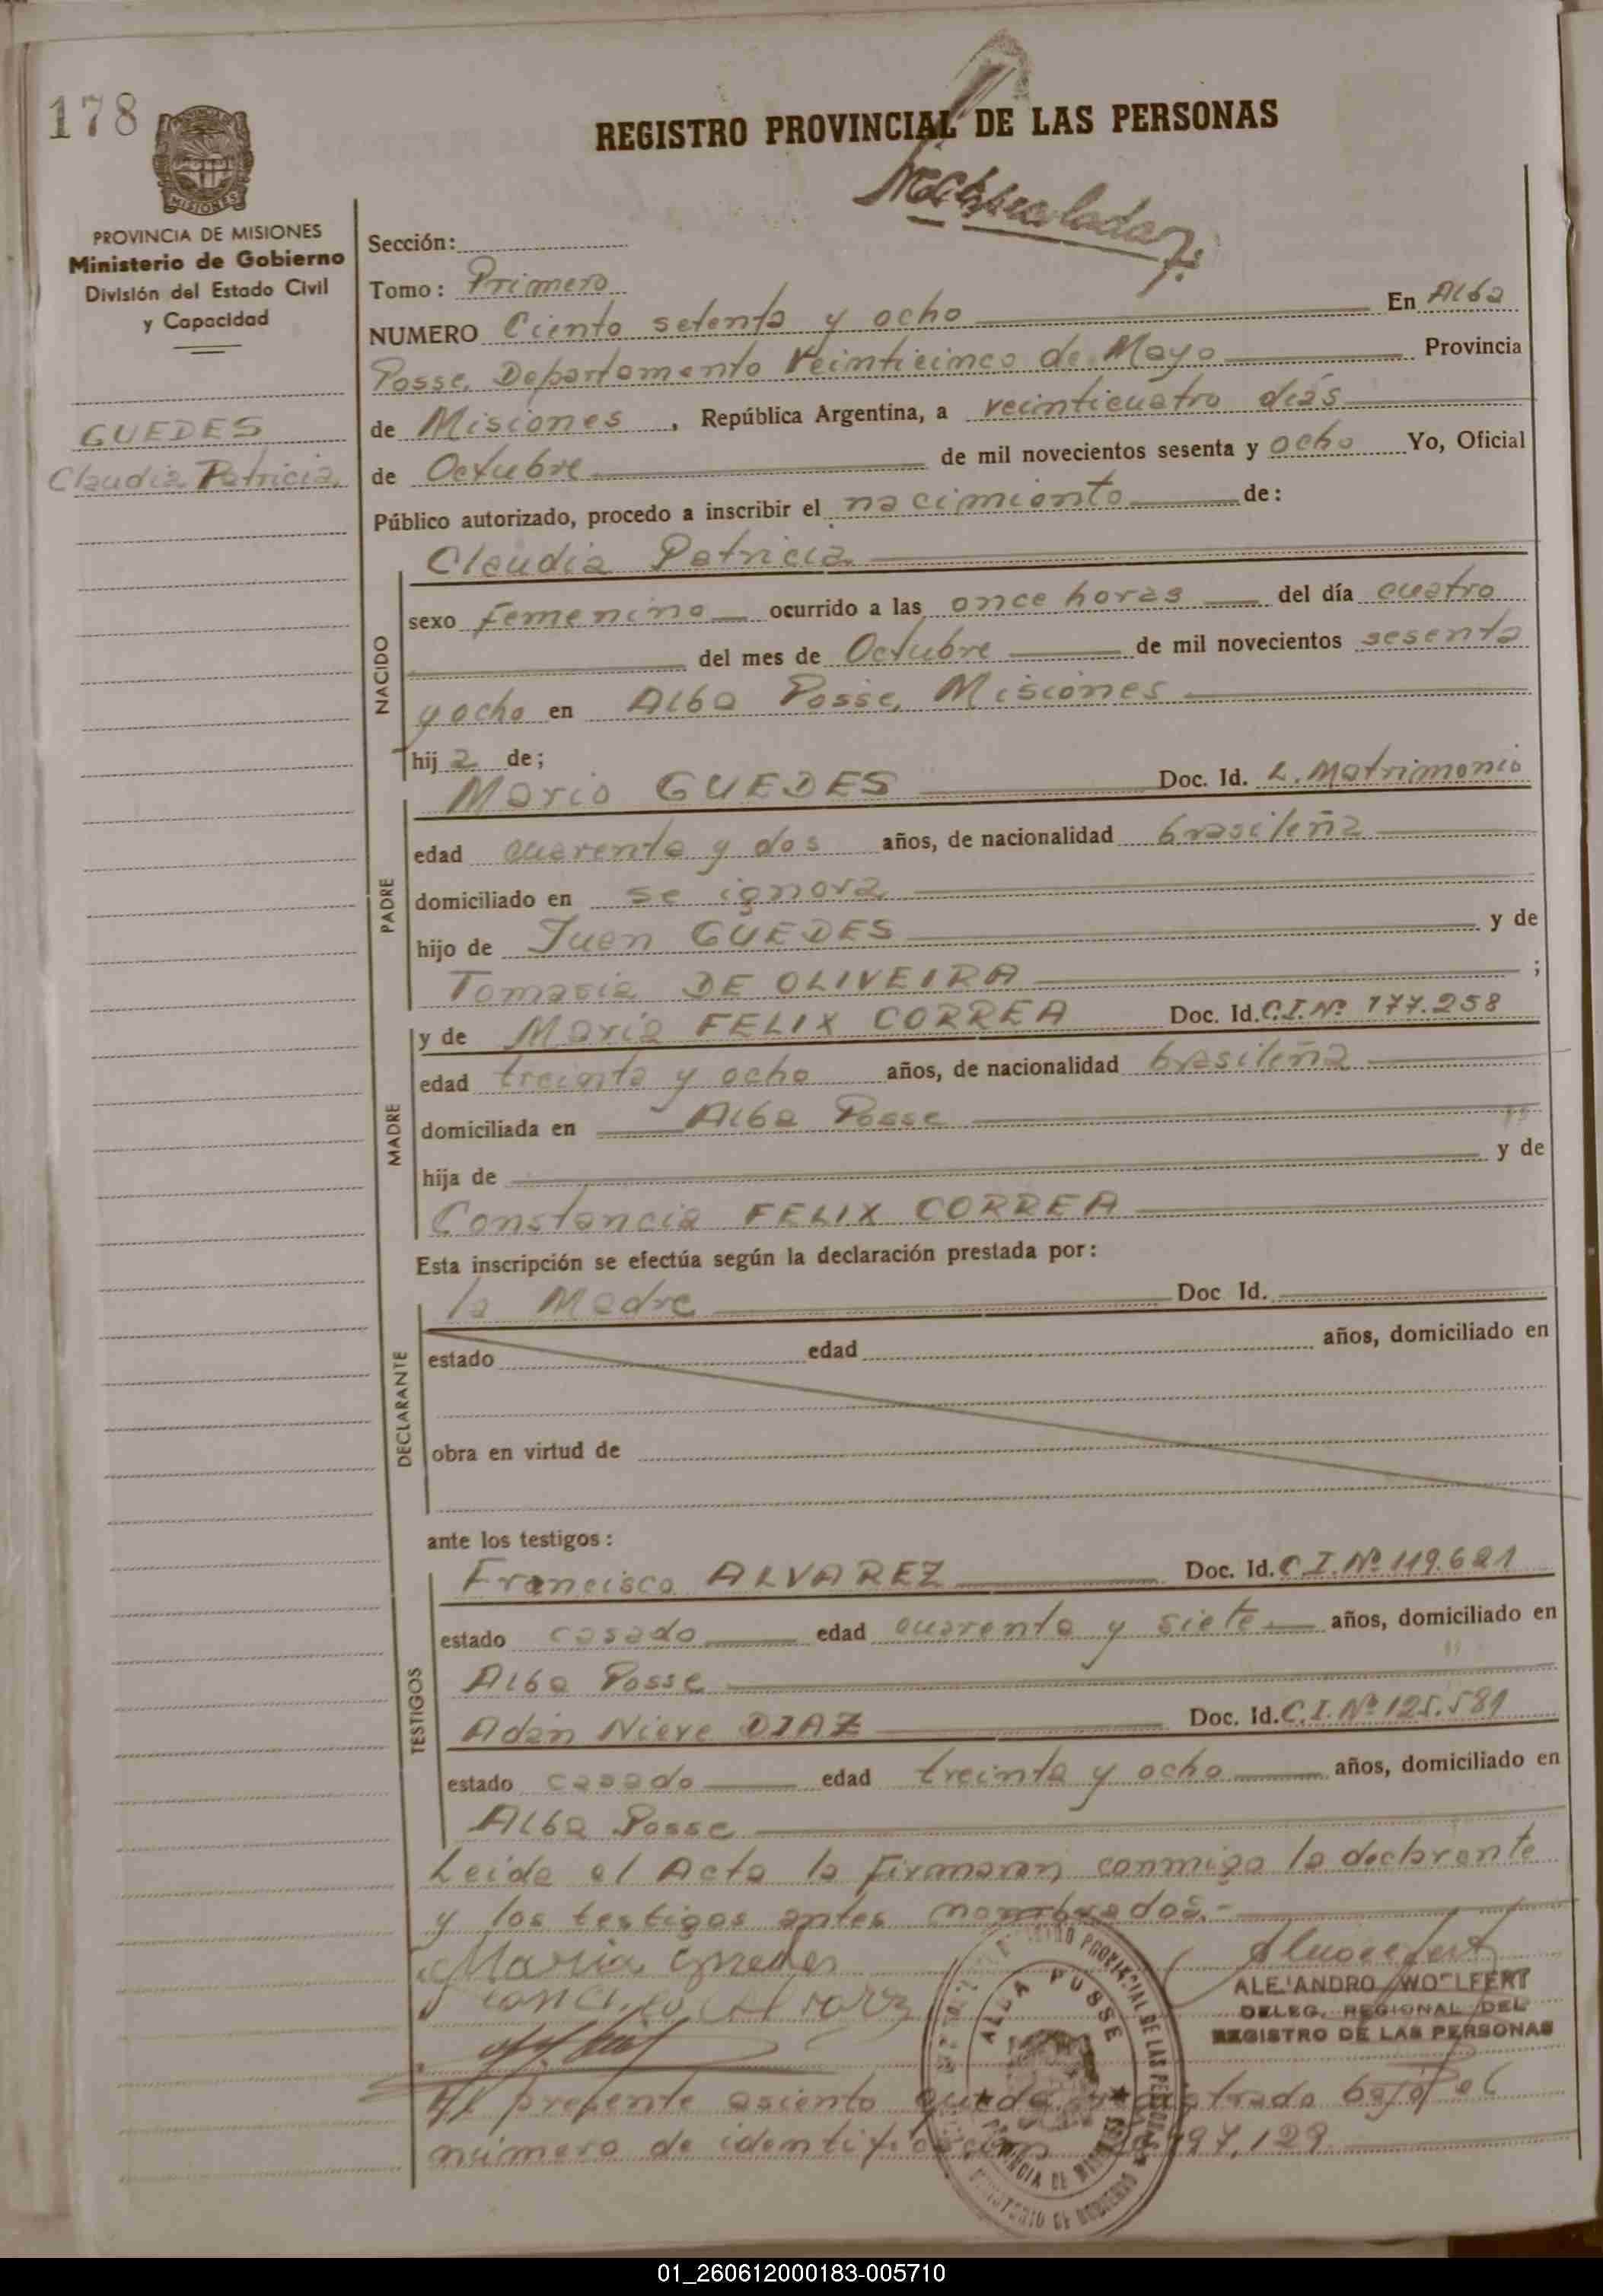 178
REGISTRO PROVINCIAL DE LAS PERSONAS
MISIONES
PROVINCIA DE MISIONES
Ministerio de Gobierno
División del Estado Civil
y Capacidad
GUEDES
Claudia Patricia
Sección:
Tomo: Primero
NUMERO Ciento setenta y ocho En Alba
Posse, Departamento Veinticinco de Mayo Provincia
de Misiones, República Argentina, a veinticuatro días
de Octubre de mil novecientos sesenta y ocho Yo, Oficial
Público autorizado, procedo a inscribir el nacimiento de:
Claudia Patricia
NACIDO
sexo Femenino ocurrido a las once horas del día cuatro
del mes de Octubre de mil novecientos sesenta
y ocho en Alba Posse, Misiones
hija de;
PADRE
Mario GUEDES Doc. Id. L. Matrimonio
edad cuarenta y dos años, de nacionalidad brasileña
domiciliado en se ignora
hijo de Juan GUEDES y de
Tomasia DE OLIVEIRA ;
MADRE
y de Maria FELIX CORREA Doc. Id. C.I.Nº 177.258
edad treinta y ocho años, de nacionalidad brasileña
domiciliada en Alba Posse
hija de y de
Constancia FELIX CORREA
Esta inscripción se efectúa según la declaración prestada por:
DECLARANTE
la Madre Doc Id.
estado edad años, domiciliado en
obra en virtud de
ante los testigos:
TESTIGOS
Francisco ALVAREZ Doc. Id. C.I.Nº 119.621
estado casado edad cuarenta y siete años, domiciliado en
Alba Posse
Adán Nieve DIAZ Doc. Id. C.I.Nº 125.581
estado casado edad treinta y ocho años, domiciliado en
Alba Posse
Leida el Acta la Firmaran conmigo la declarante
y los testigos antes nombrados.-
Maria Guedes
ALEJANDRO WOLFERT
DELEG. REGIONAL DEL
REGISTRO DE LAS PERSONAS
PROVINCIAL DE LAS PERSONAS
ALBA POSSE
PROVINCIA DE MISIONES
MINISTERIO DE GOBIERNO
El presente asiento queda registrado bajo el
número de identificación
01_260612000183-005710